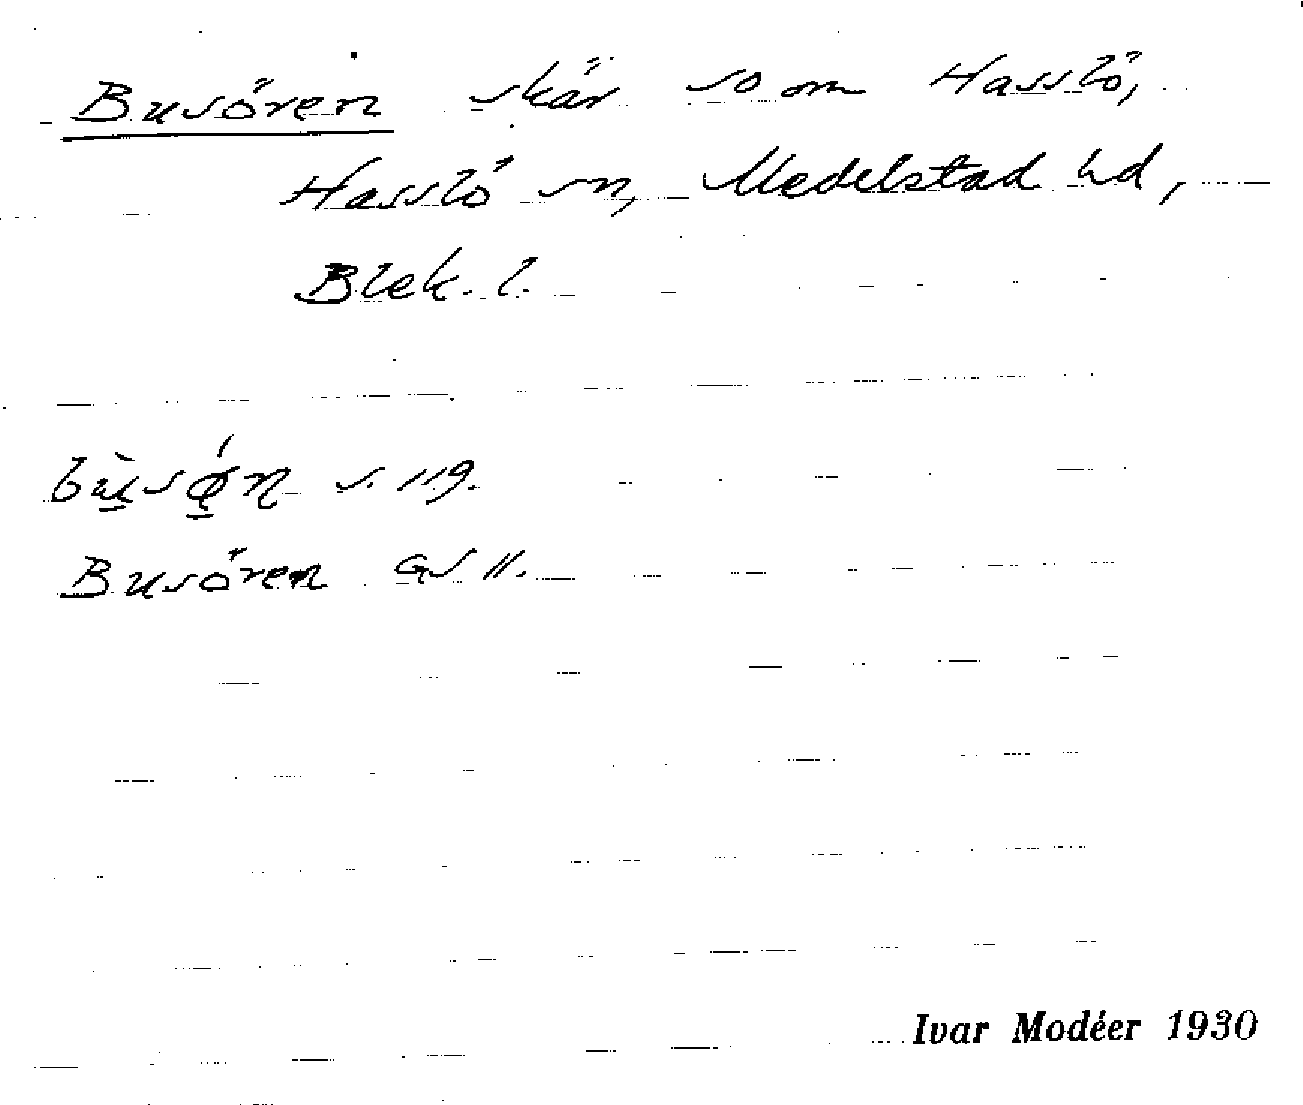 Busören skär som Hasslö,
Hasslö sn, Medelstad hd,
Blek. l.
s. 119.
Busören GS 11.
Ivar Modéer 1930